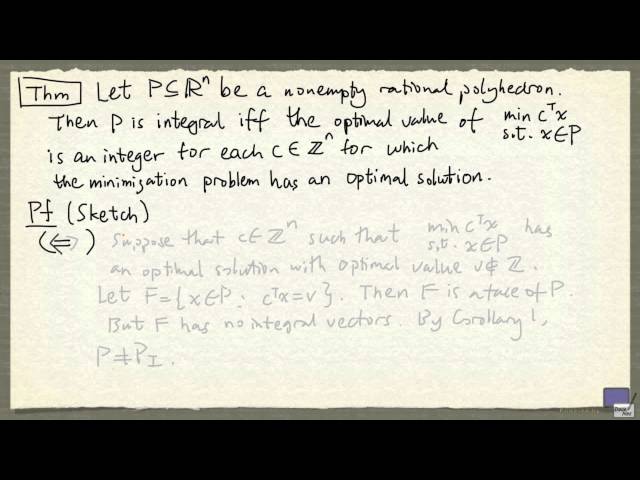 Thm Let P⊆ℝⁿ be a nonempty rational polyhedron.
Then P is integral iff the optimal value of min cᵀx s.t. x∈P
is an integer for each c∈ℤⁿ for which
the minimization problem has an optimal solution.
Pf (Sketch)
(⇐) Suppose that c∈ℤⁿ such that min cᵀx s.t. x∈P has
an optimal solution with optimal value v∉ℤ.
Let F={x∈P : cᵀx=v}. Then F is a face of P.
But F has no integral vectors. By Corollary 1,
P≠P_I.